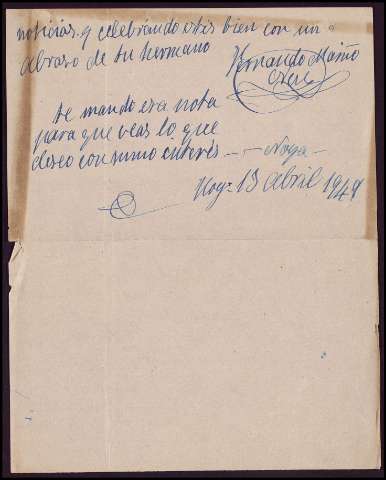 noticias y celebrando esteis bien con un
abrazo de tu hermano
Fernando
te mando esa nota
para que veas lo que
deseo con sumo interés — — Noya —
Hoy = 13 Abril 1949